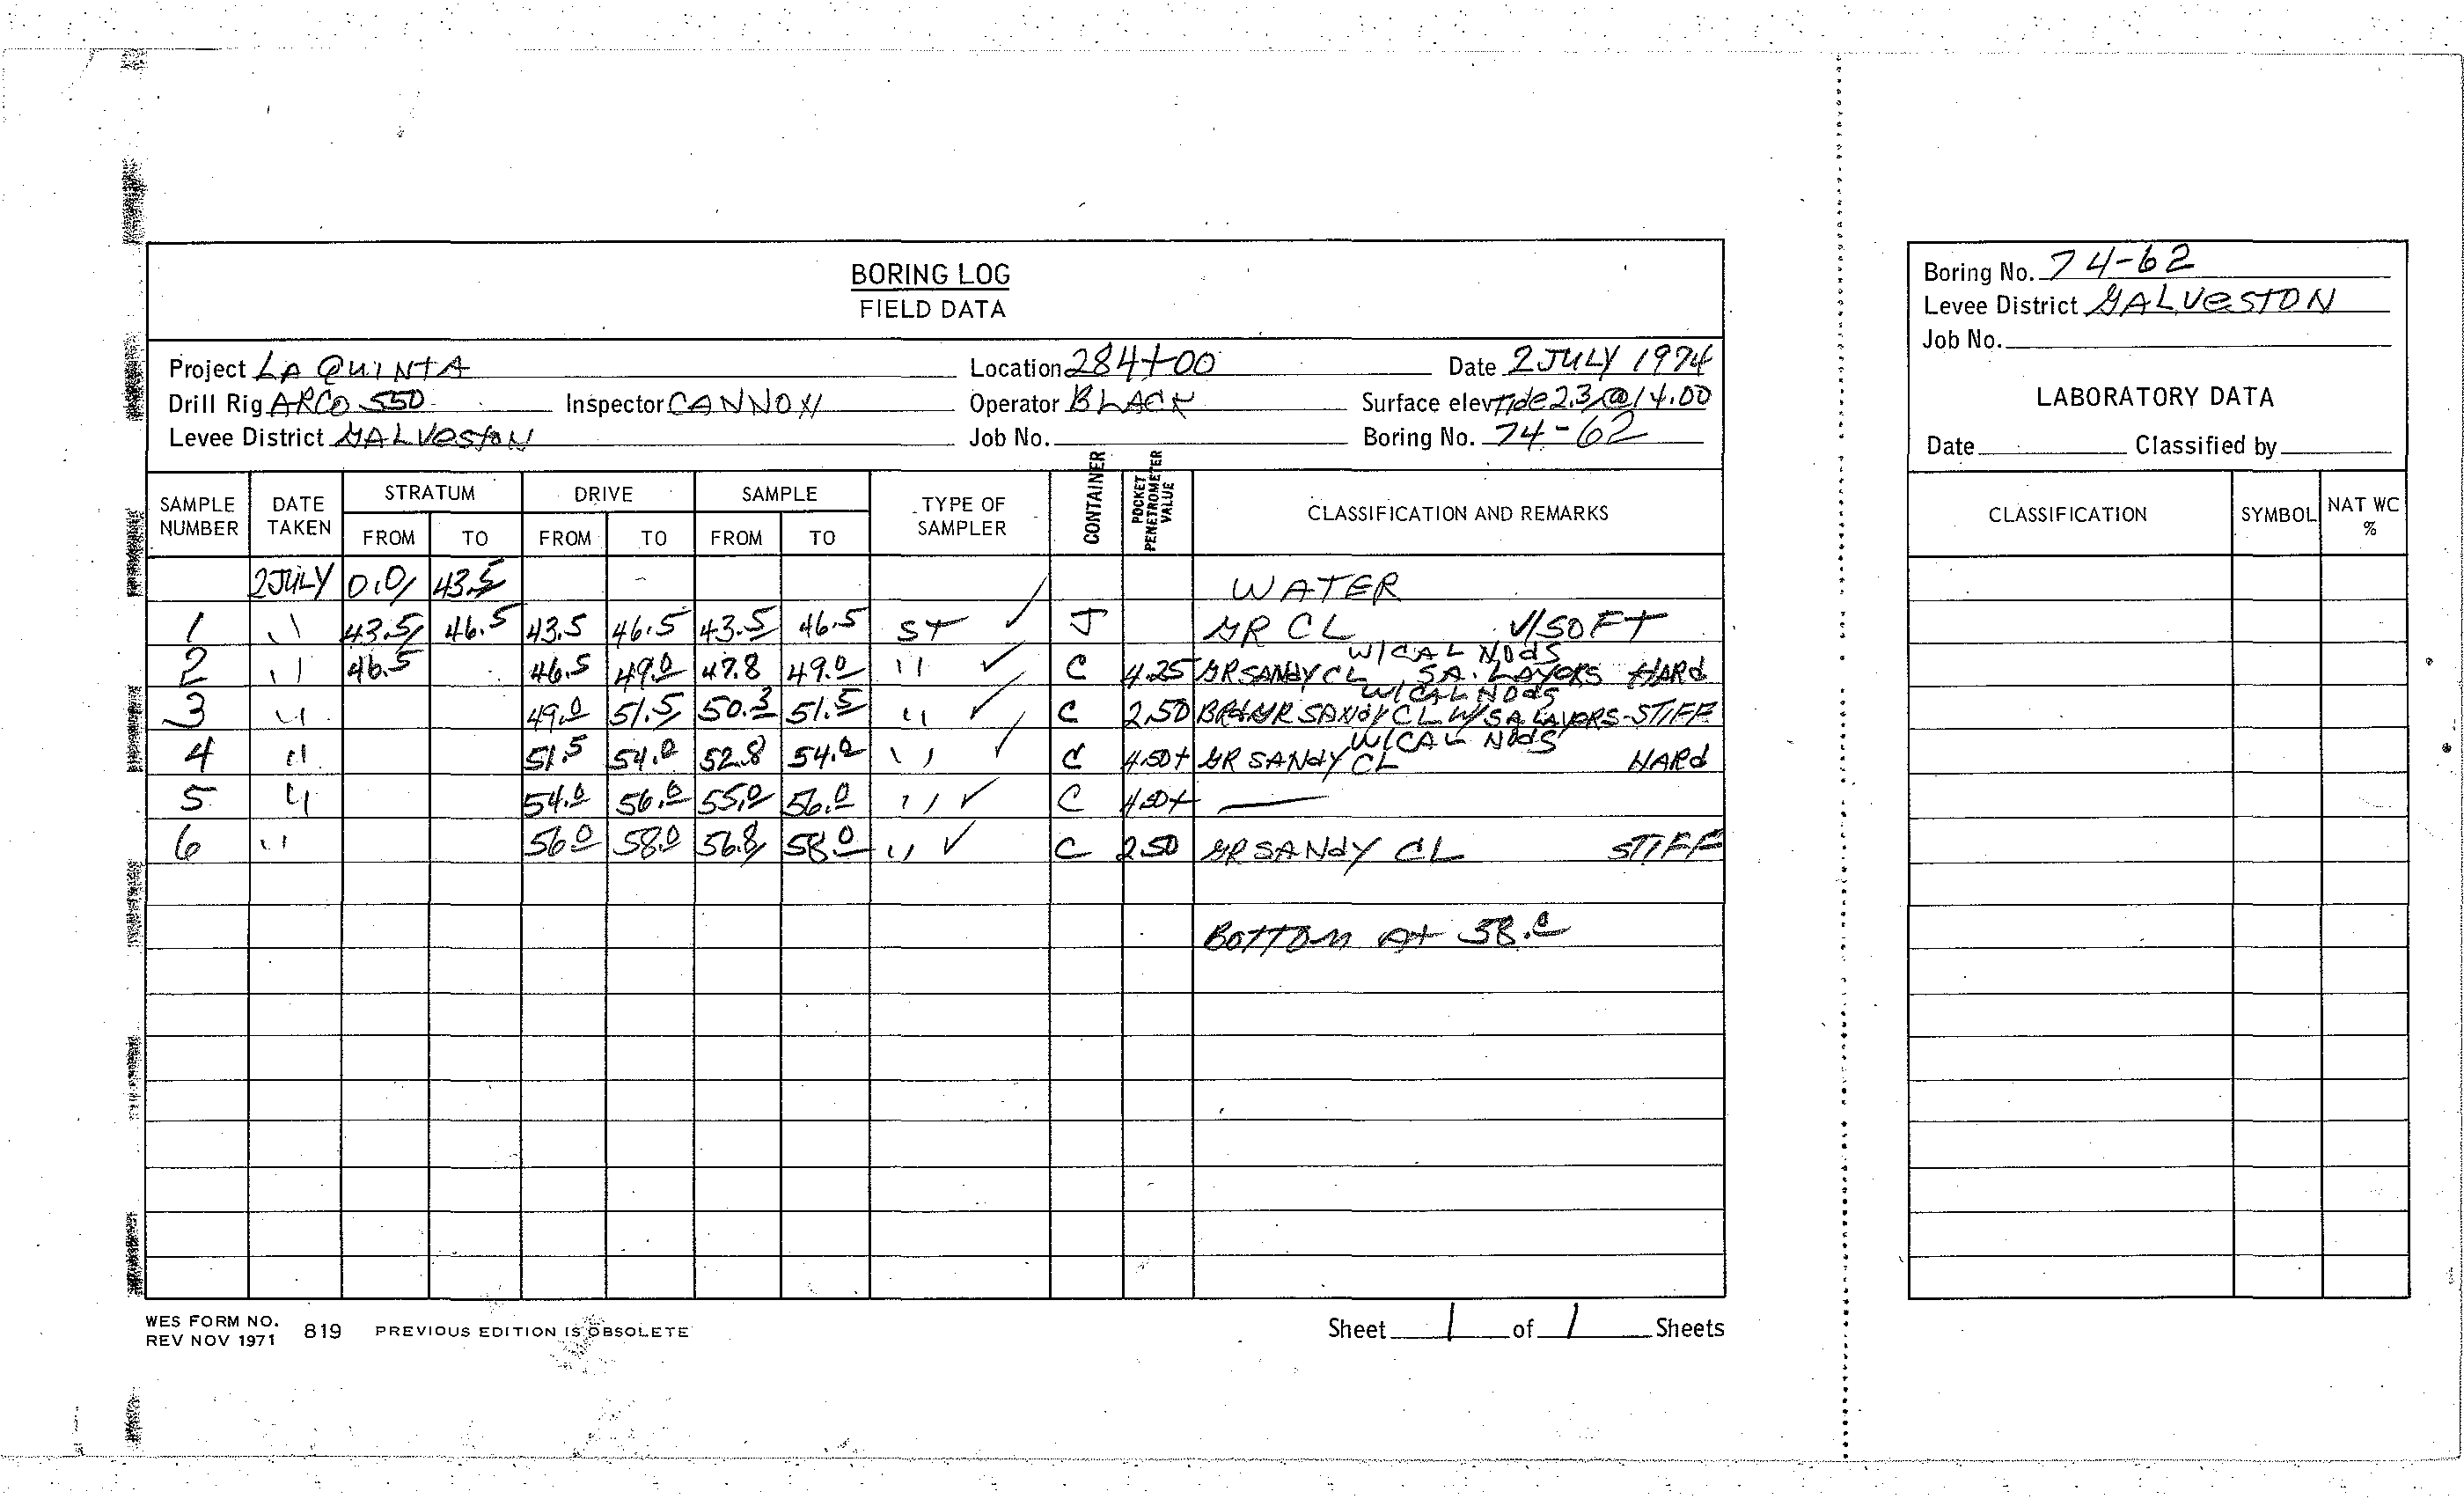 BORING LOG
FIELD DATA
Project LA QUINTA Location 284+00 Date 2 JULY 1974
Drill Rig ARCO 550 Inspector CANNON Operator BLACK Surface elev Tide 2.3 @ 14.00
Levee District GALVESTON Job No. Boring No. 74-62
SAMPLE NUMBER DATE TAKEN STRATUM FROM TO DRIVE FROM TO SAMPLE FROM TO TYPE OF SAMPLER CONTAINER POCKET PENETROMETER VALUE CLASSIFICATION AND REMARKS
2 JULY 0.0 43.5 WATER
1 " 43.5 46.5 43.5 46.5 43.5 46.5 ST ✓ J GR CL V/SOFT
2 " 46.5 46.5 49.0 47.8 49.0 " ✓ C 4.25 GR SANDY CL W/CAL NODS SA. LAYERS HARD
3 " 49.0 51.5 50.3 51.5 " ✓ C 2.50 BR&GR SANDY CL W/CAL NODS W/SA LAYERS-STIFF
4 " 51.5 54.0 52.8 54.0 " ✓ C 4.50+ GR SANDY CL W/CAL NODS HARD
5 " 54.0 56.0 55.0 56.0 " ✓ C 4.50+ —
6 " 56.0 58.0 56.8 58.0 " ✓ C 2.50 GR SANDY CL STIFF
BOTTOM AT 58.0
WES FORM NO. 819 PREVIOUS EDITION IS OBSOLETE
REV NOV 1971
Sheet 1 of 1 Sheets
Boring No. 74-62
Levee District GALVESTON
Job No.
LABORATORY DATA
Date Classified by
CLASSIFICATION SYMBOL NAT WC %